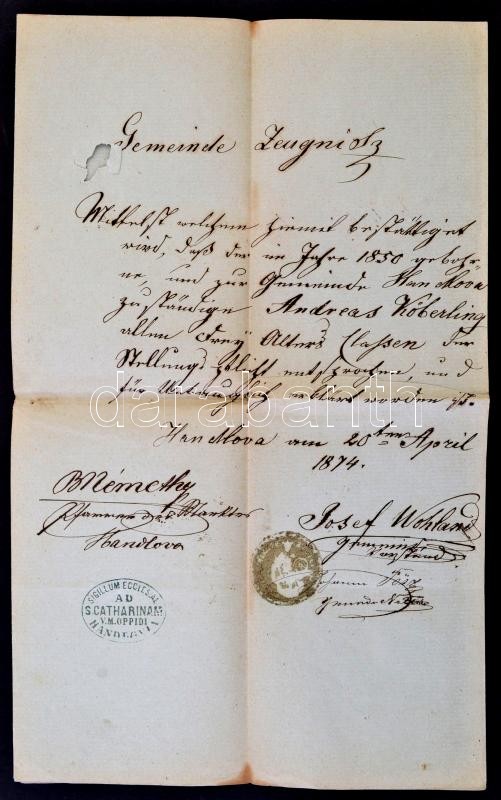 Gemeinde Zeugnisz
Mittelst welchem hiemit bestättiget
wird, daß der im Jahre 1850 gebohr-
ne, und zur Gemeinde Handlova
zuständige Andreas Köberling
allen Drey Alters Classen der
Stellungs Pflicht entsprochen, und
für Untauglich erklärt worden ist.
Handlova am 20ten April
1874.
darabanth
BNémethy
Pfarrer des Marktes
Handlova
Josef Wohland
Gemeinde
Vorstand
Johann
SIGILLUM ECCLES. AE
AD
S. CATHARINAM
V.M. OPPIDI
HANDLOVA